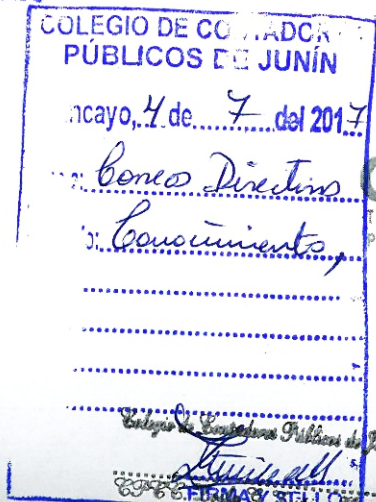 COLEGIO DE CO ADOR
PÚBLICOS DE JUNÍN
ncayo, 4 de 7 del 2017
Directivo
o: Conocimiento,
Colegio de Contadores Públicos de J
FIRMA Y SELLO